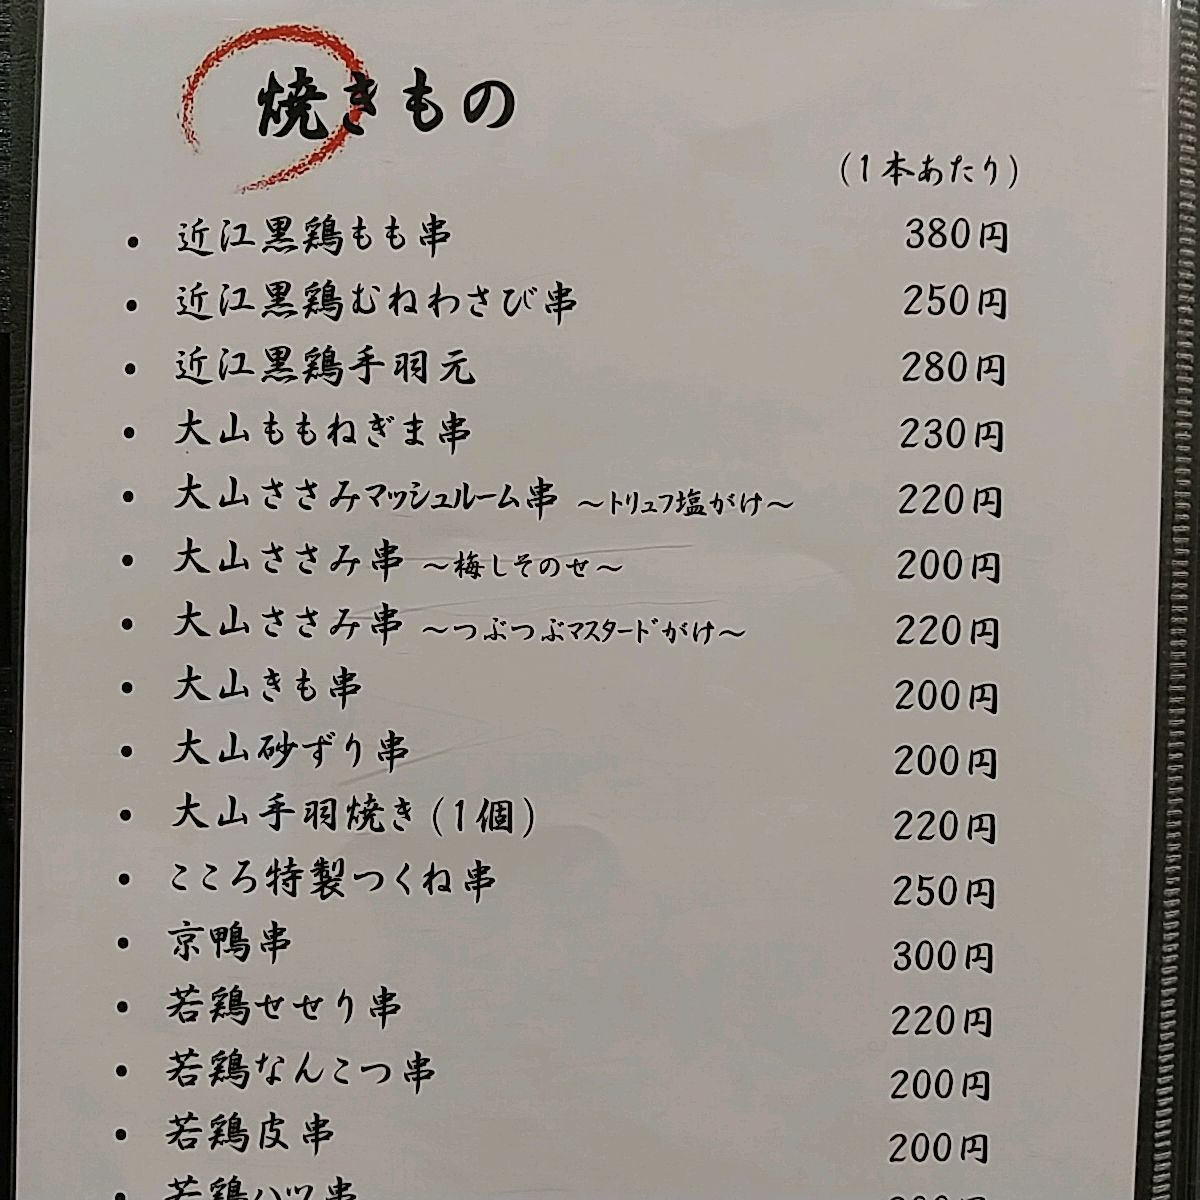 焼きもの
(1本あたり)
・近江黒鶏もも串 380円
・近江黒鶏むねわさび串 250円
・近江黒鶏手羽元 280円
・大山ももねぎま串 230円
・大山ささみマッシュルーム串 ～トリュフ塩がけ～ 220円
・大山ささみ串 ～梅しそのせ～ 200円
・大山ささみ串 ～つぶつぶマスタードがけ～ 220円
・大山きも串 200円
・大山砂ずり串 200円
・大山手羽焼き(1個) 220円
・こころ特製つくね串 250円
・京鴨串 300円
・若鶏せせり串 220円
・若鶏なんこつ串 200円
・若鶏皮串 200円
・若鶏ハツ串